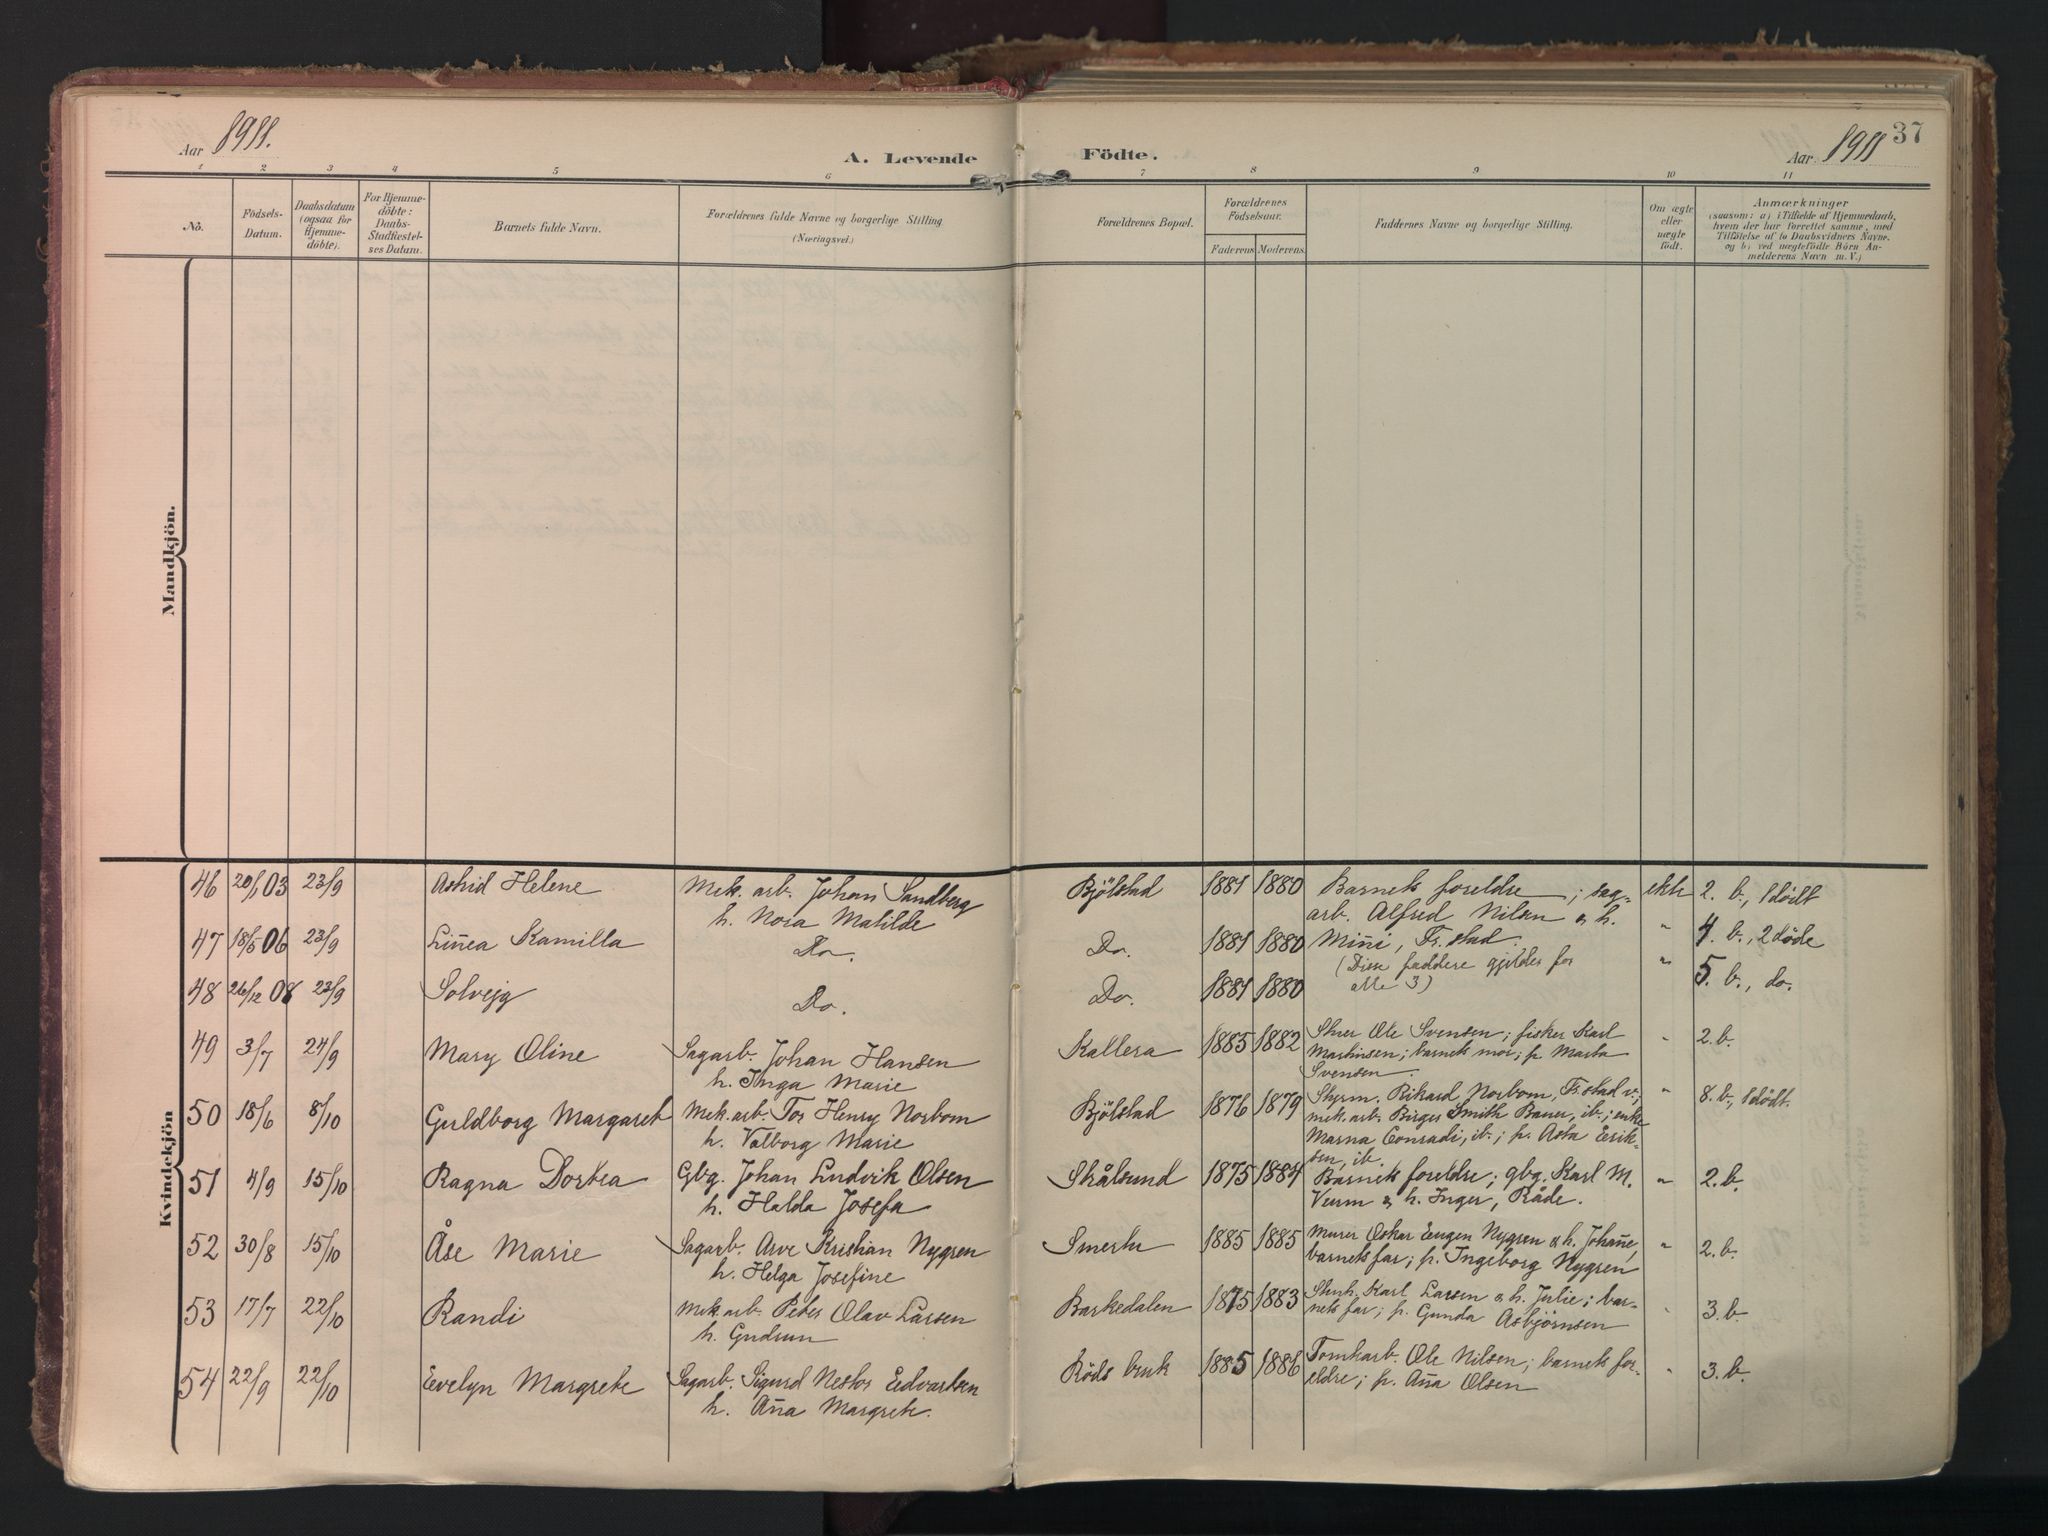 Aar 1911.
A. Levende Födte.
Aar 1911
37
1 2 3 4 5 6 7 8 9 10 11
No.
Födsels-Datum.
Daabsdatum (ogsaa for Hjemmedöbte).
For Hjemmedöbte: Daabs-Stadfæstelses Datum.
Barnets fulde Navn.
Forældrenes fulde Navne og borgerlige Stilling.
(Næringsvei.)
Forældrenes Bopæl.
Forældrenes Födselsaar.
Faderens Moderens
Faddernes Navne og borgerlige Stilling.
Om ægte eller uægte födt.
Anmærkninger
(saasom: a) i Tilfælde af Hjemmedaab,
hvem der har forrettet samme, med
Tilföielse af to Daabsvidners Navne.
og b) ved uægtefödte Börn An-
melderens Navn m. V.)
Mandkjön.
Kvindekjön
46 20/1 03 23/9 Astrid Helene Mek. arb. Johan Sandberg Bjölstad 1881 1880 Barnets foreldre; sag- ekte 2. b., 1 dödt
h. Nora Matilde arb. Alfred Nilsen & h.
47 18/5 06 23/9 Liñea Kamilla Do. Do. 1881 1880 Miñi, Fr.stad. " 4. b., 2 döde
(Disse faddere gjelder for
48 26/12 08 23/9 Solvejg Do. Do. 1881 1880 alle 3) " 5. b., do.
49 3/7 24/9 Mary Oline Sagarb. Johan Hansen Kallera 1885 1882 Ole Svensen; fisker Karl " 2. b.
h. Inga Marie Martinsen; barnets mor; p. Marta
Svensen.
50 18/6 8/10 Guldborg Margaret Mek. arb. Tor Henry Norbom Bjölstad 1876 1879 Styrm. Rikard Norbom, Fr.stad v.; " 8. b., 1 dödt.
h. Valborg Marie mek. arb. Birger Smith Bauer, ib.; enke
Marna Conradi, ib.; p. Asta Eerik-
sen, ib
51 4/9 15/10 Ragna Dortea Gbg. Johan Ludvik Olsen Skålsund 1875 1884 Barnets foreldre; gbg. Karl M. " 2. b.
h. Halda Josefa Veum & h. Inger, Råde.
52 30/8 15/10 Åse Marie Sagarb. Arve Kristian Nygren Smertu 1885 1885 Murer Oskar Eugen Nygren & h. Johañe, " 2. b.
h. Helga Josefine barnets far; p. Ingeborg Nygren
53 17/7 22/10 Randi Mek. arb. Peter Olav Larsen Barkedalen 1875 1883 Karl Larsen & h. Julie; bar- " 3. b.
h. Gudrun nets far; p. Gunda Asbjörnsen
54 22/9 22/10 Eevelyn Margrete Sagarb. Sigurd Nestor Eedvartsen Röds bruk 1885 1886 Tomtarb. Ole Nilsen; barnets for- " 3. b.
h. Aña Margrete. eldre; p. Aña Olsen